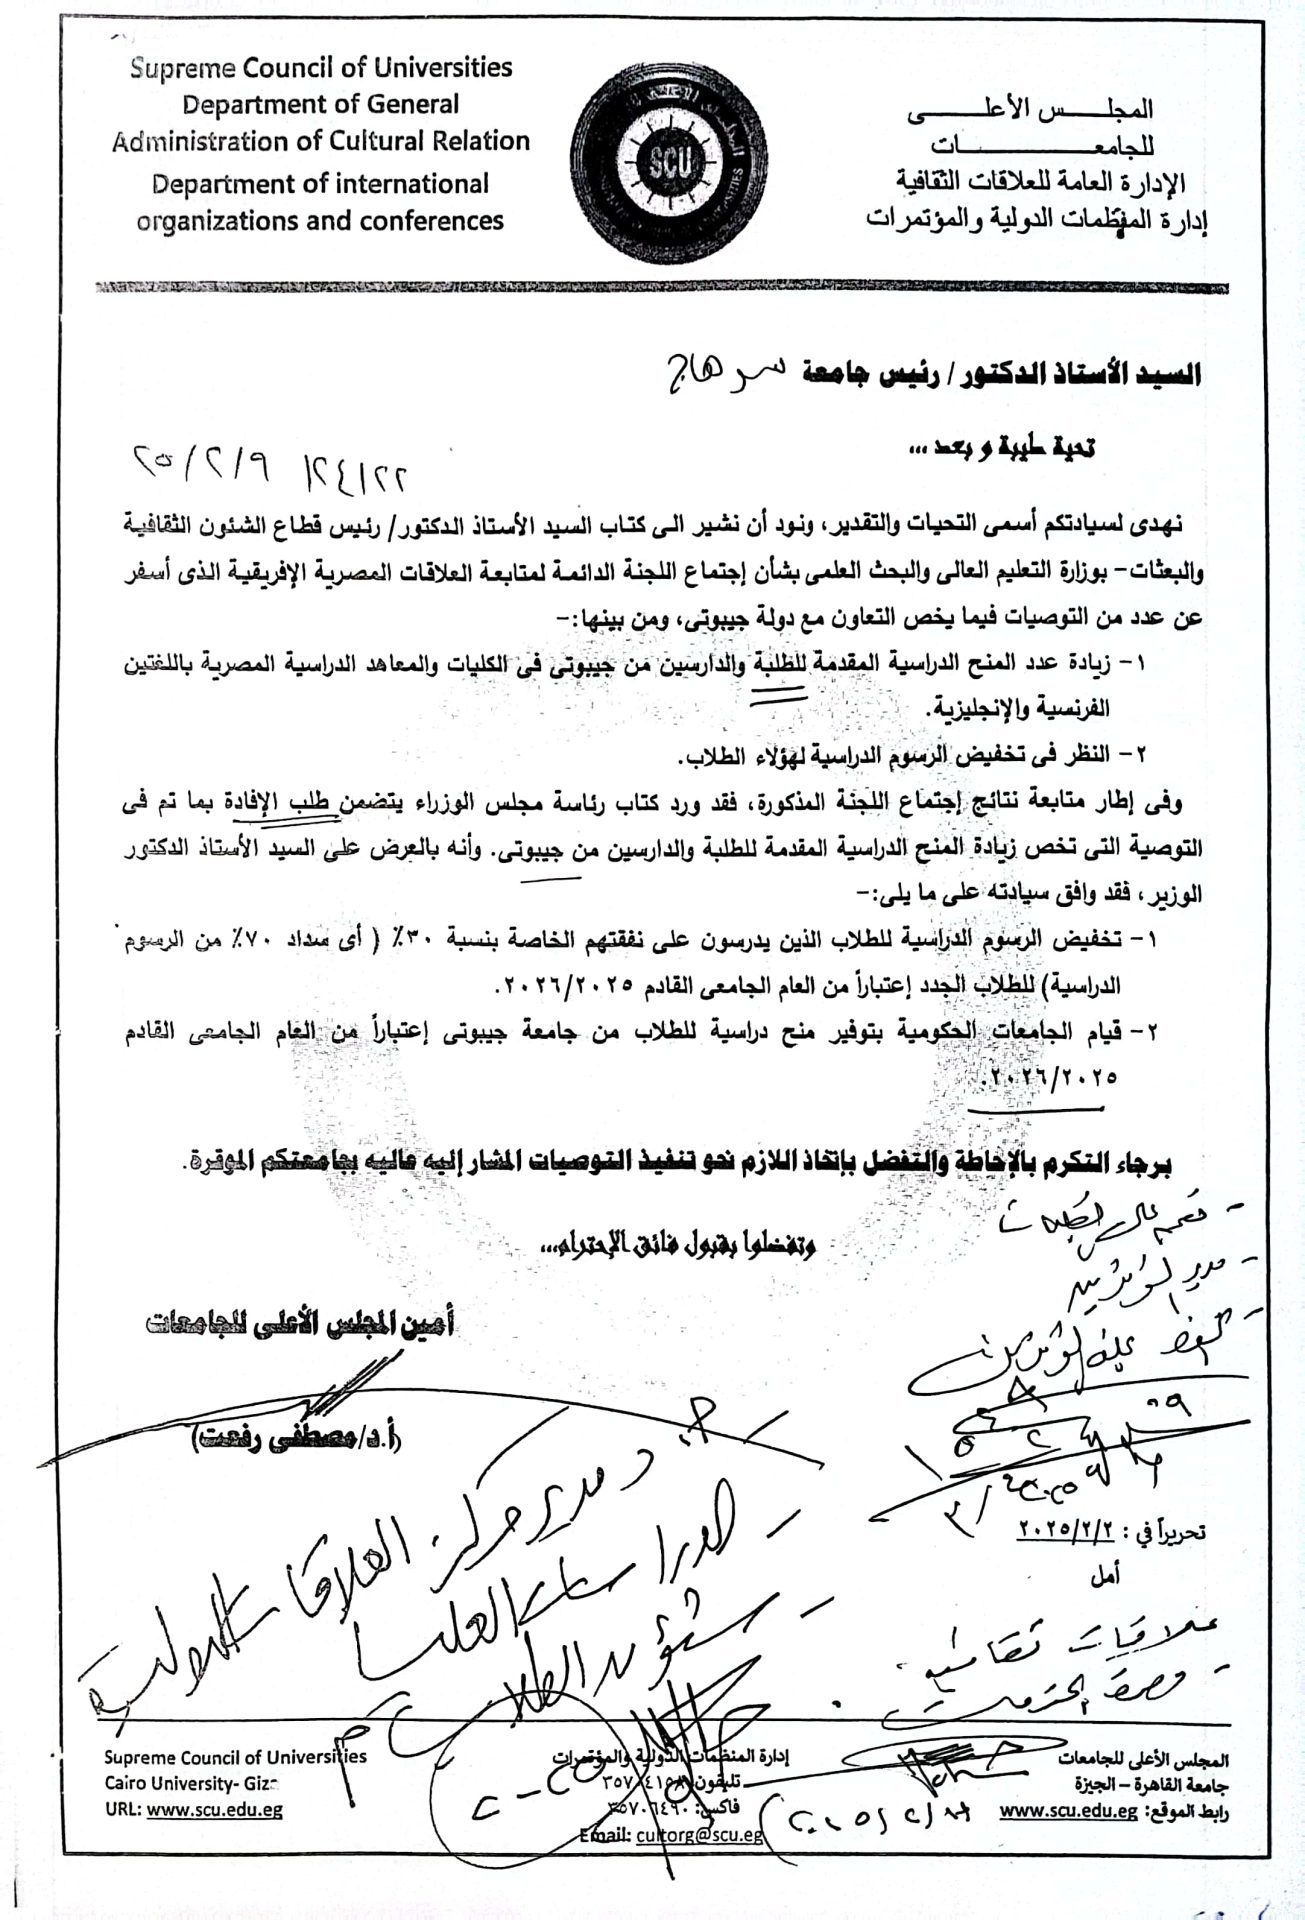 Supreme Council of Universities
Department of General
Administration of Cultural Relation
Department of international
organizations and conferences
SCU
المجلس الأعلى
للجامعات
الإدارة العامة للعلاقات الثقافية
إدارة المنظمات الدولية والمؤتمرات
السيد الأستاذ الدكتور / رئيس جامعة سوهاج
تحية طيبة و بعد ...
١٢٤١٢٢ ٢٥/٢/٩
نهدى لسيادتكم أسمى التحيات والتقدير، ونود أن نشير الى كتاب السيد الأستاذ الدكتور/ رئيس قطاع الشئون الثقافية
والبعثات- بوزارة التعليم العالى والبحث العلمى بشأن إجتماع اللجنة الدائمة لمتابعة العلاقات المصرية الإفريقية الذى أسفر
عن عدد من التوصيات فيما يخص التعاون مع دولة جيبوتى، ومن بينها:-
١- زيادة عدد المنح الدراسية المقدمة للطلبة والدارسين من جيبوتى فى الكليات والمعاهد الدراسية المصرية باللغتين
الفرنسية والإنجليزية.
٢- النظر فى تخفيض الرسوم الدراسية لهؤلاء الطلاب.
وفى إطار متابعة نتائج إجتماع اللجنة المذكورة، فقد ورد كتاب رئاسة مجلس الوزراء يتضمن طلب الإفادة بما تم فى
التوصية التى تخص زيادة المنح الدراسية المقدمة للطلبة والدارسين من جيبوتى. وأنه بالعرض على السيد الأستاذ الدكتور
الوزير، فقد وافق سيادته على ما يلى:-
١- تخفيض الرسوم الدراسية للطلاب الذين يدرسون على نفقتهم الخاصة بنسبة ٣٠٪ ( أى سداد ٧٠٪ من الرسوم
الدراسية) للطلاب الجدد إعتباراً من العام الجامعى القادم ٢٠٢٦/٢٠٢٥.
٢- قيام الجامعات الحكومية بتوفير منح دراسية للطلاب من جامعة جيبوتى إعتباراً من العام الجامعى القادم
٢٠٢٦/٢٠٢٥.
برجاء التكرم بالإحاطة والتفضل بإتخاذ اللازم نحو تنفيذ التوصيات المشار إليه عاليه بجامعتكم الموقرة.
وتفضلوا بقبول فائق الإحترام...
أمين المجلس الأعلى للجامعات
(أ.د/مصطفى رفعت)
- د مدير مركز العلاقات الدولية
- الدراسات العليا
- شئون الطلاب
تحريراً في : ٢٠٢٥/٢/٢
أمل
علاقات ثقافية
Supreme Council of Universities
Cairo University- Giza
URL: www.scu.edu.eg
إدارة المنظمات الدولية والمؤتمرات
تليفون: ٣٥٧٠٤١٥٨
فاكس: ٣٥٧٠٦٤٩٠
Email: cultorg@scu.eg
المجلس الأعلى للجامعات
جامعة القاهرة – الجيزة
رابط الموقع: www.scu.edu.eg